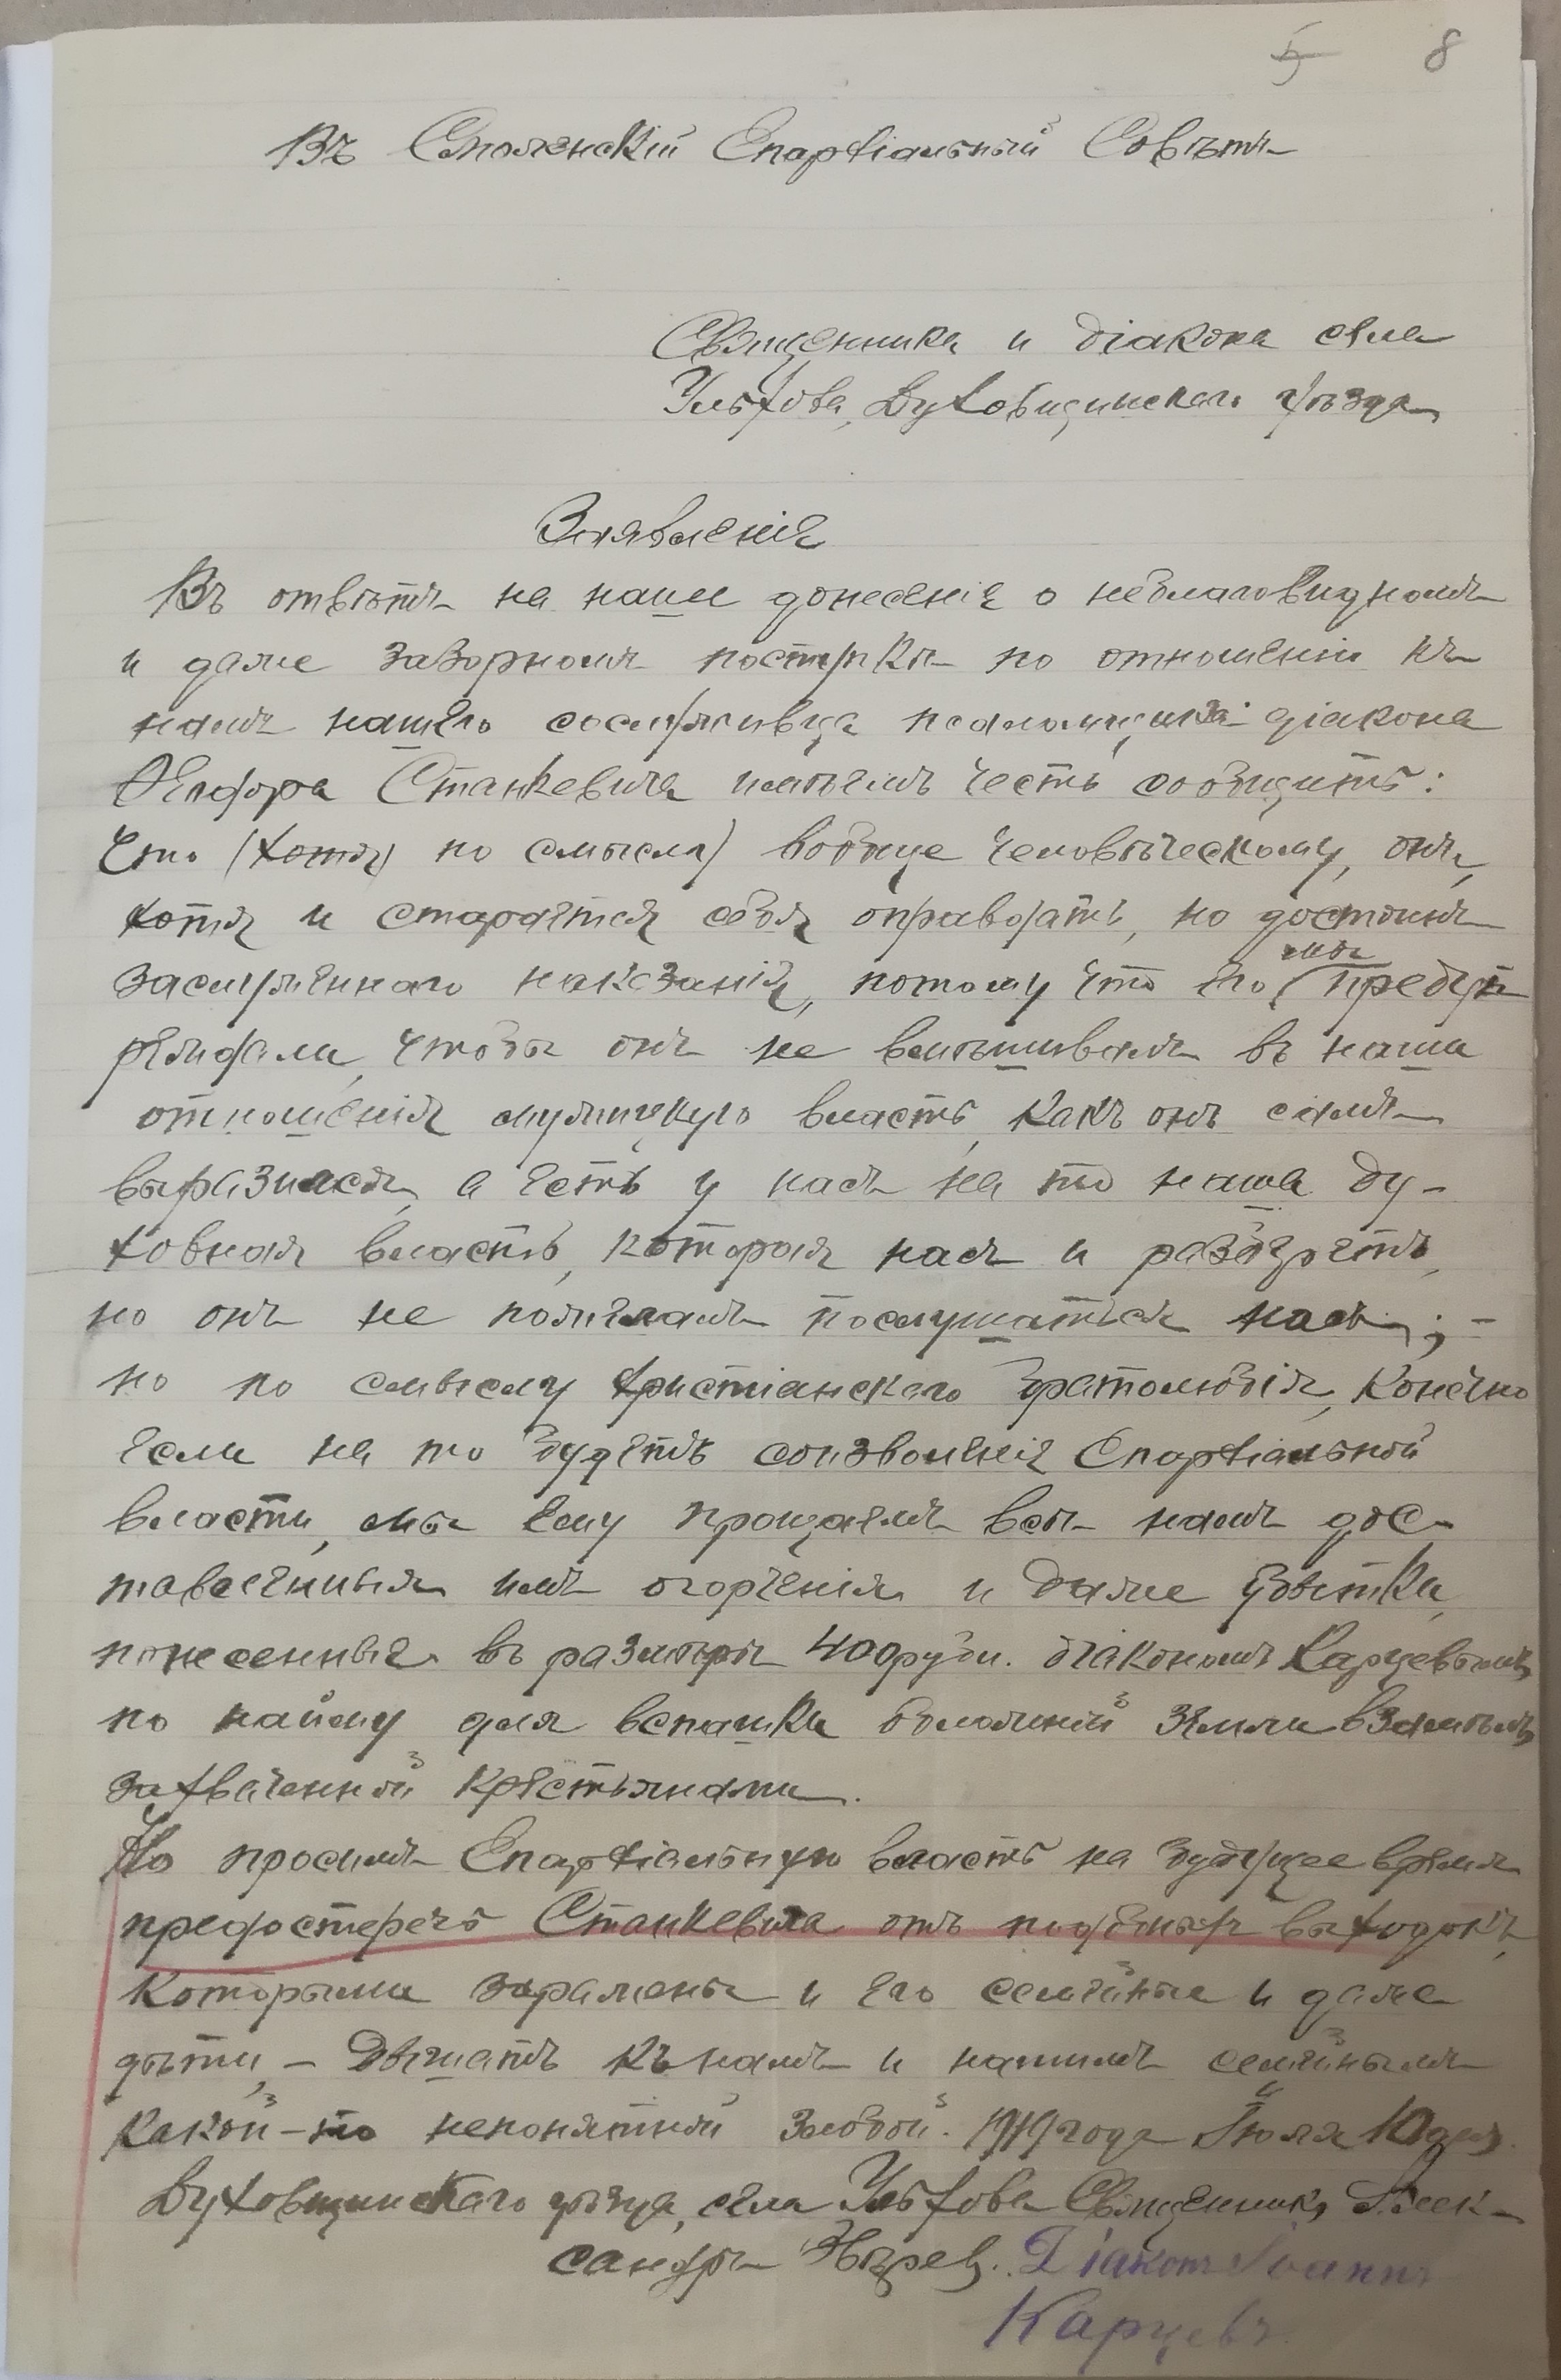 5 8
Въ Смоленскій Епархіальный Совѣтъ
Священника и діакона села
Ульхова, Духовщинскаго уѣзда
Заявленіе
Въ отвѣтъ на наше донесеніе о неблаговидномъ
и даже зазорномъ поступкѣ по отношенію къ
намъ нашего сослуживца псаломщика-діакона
Станкевича имѣемъ честь сообщить:
Что (хотя) по смыслу вобще человѣческому, онъ,
хотя и старается себя оправдать, но достоинъ
заслуженнаго наказанія, потому что его мы предуп
реждали, чтобы онъ не вмѣшивалъ въ наши
отношенія мужицкую власть, какъ онъ самъ
выразился, а есть у насъ на то наша ду-
ховная власть, которая насъ и разберетъ,
но онъ не пожелалъ послушаться насъ; -
но по смыслу христіанскаго братолюбія, конечно
если на то будетъ соизволеніе Епархіальной
власти, мы ему прощаемъ всѣ намъ дос-
тавленныя имъ огорченія и даже убытки,
понесенные въ размѣрѣ 400 рубл. діакономъ Карцевымъ,
по найму для вспашки болотной земли взамѣнъ
захваченной крестьянами.
Но просимъ Епархіальную власть на будущее время
предостеречь Станкевича отъ подобныхъ выходокъ,
которыми заражены и его семейные и даже
дѣти, - дышатъ къ намъ и нашимъ семейнымъ
какой-то непонятной злобой. 1919 года Іюля 10 дня.
Духовщинскаго уѣзда, села Ульхова Священникъ Алек-
сандръ Діаконъ Іоаннъ
Карцевъ